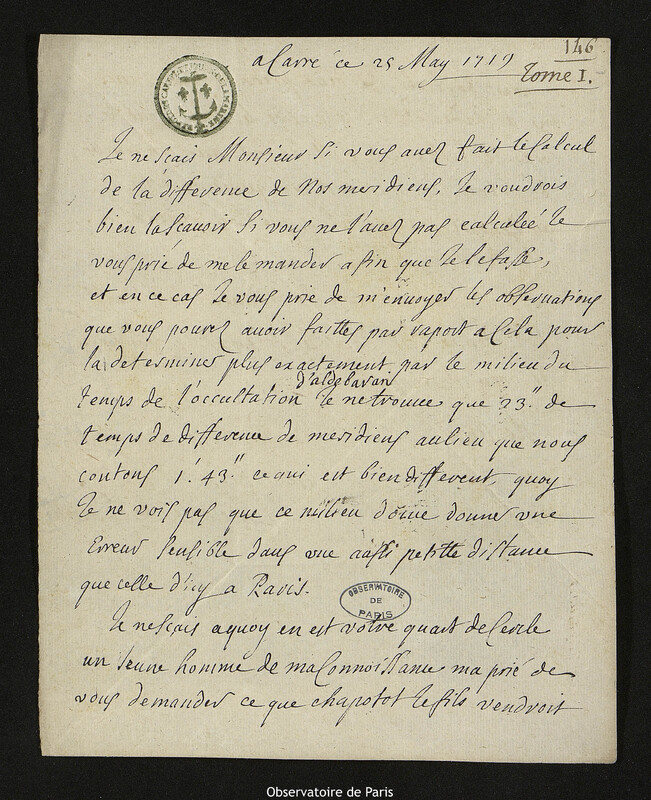 146
a Carré ce 25 May 1719
Tome I.
Je ne sçais Monsieur si vous avez fait le Calcul
de la difference de nos meridiens, Je voudrois
bien la scauoir si vous ne l'auez pas calculeé Je
vous prié de me le mander afin que Je le fasse,
et en ce cas Je vous prie de m'envoyer les observations
que vous pouvez auoir faittes par raport a Cela pour
la determiner plus exactement. par le milieu du
temps de l'occultation d'aldebaran Je ne trouue que 23." de
temps de difference de meridiens au lieu que nous
contons 1'. 43." ce qui est bien different, quoy
Je ne vois pas que ce milieu doiue donner vne
Erreur sensible dans vne aussi petitte distance
que celle d'icy a Paris.
OBSERVATOIRE DE PARIS
Je ne sçais a quoy en est votre quart de Cercle
un Jeune homme de ma Connoissance ma prié de
vous demander ce que chapotot le fils vendroit
Observatoire de Paris